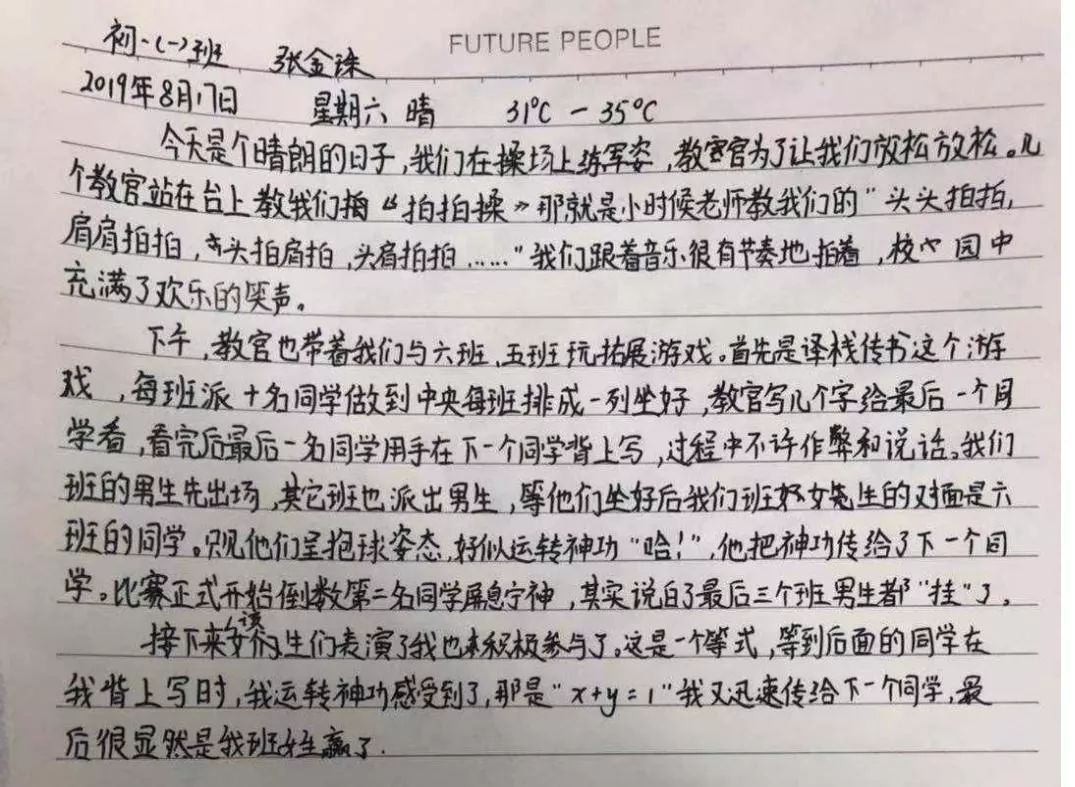 初一(一)班 张金诛 FUTURE PEOPLE
2019年8月17日 星期六 晴 31°C — 35°C
今天是个晴朗的日子,我们在操场上练军姿,教官为了让我们放松放松。几
个教官站在台上教我们《拍拍操》那就是小时候老师教我们的"头头拍拍,
肩肩拍拍,头拍肩拍,头肩拍拍……"我们跟着音乐很有节奏地拍着,校园中
充满了欢乐的笑声。
下午,教官也带着我们与六班,五班玩拓展游戏。首先是译栈传书这个游
戏,每班派十名同学做到中央每班排成一列坐好,教官写几个字给最后一个同
学看,看完后最后一名同学用手在下一个同学背上写,过程中不许作弊和说话。我们
班的男生先出场,其它班也派出男生,等他们坐好后我们班女生的对面是六
班的同学。只见他们呈抱球姿态,好似运转神功"哈!",他把神功传给了下一个同
学。比赛正式开始倒数第二名同学屏息宁神,其实说白了最后三个班男生都"挂"了。
接下来该女生们表演了我也积极参与了。这是一个等式,等到后面的同学在
我背上写时,我运转神功感受到了,那是"x+y=1"我又迅速传给下一个同学,最
后很显然是我班女生赢了.